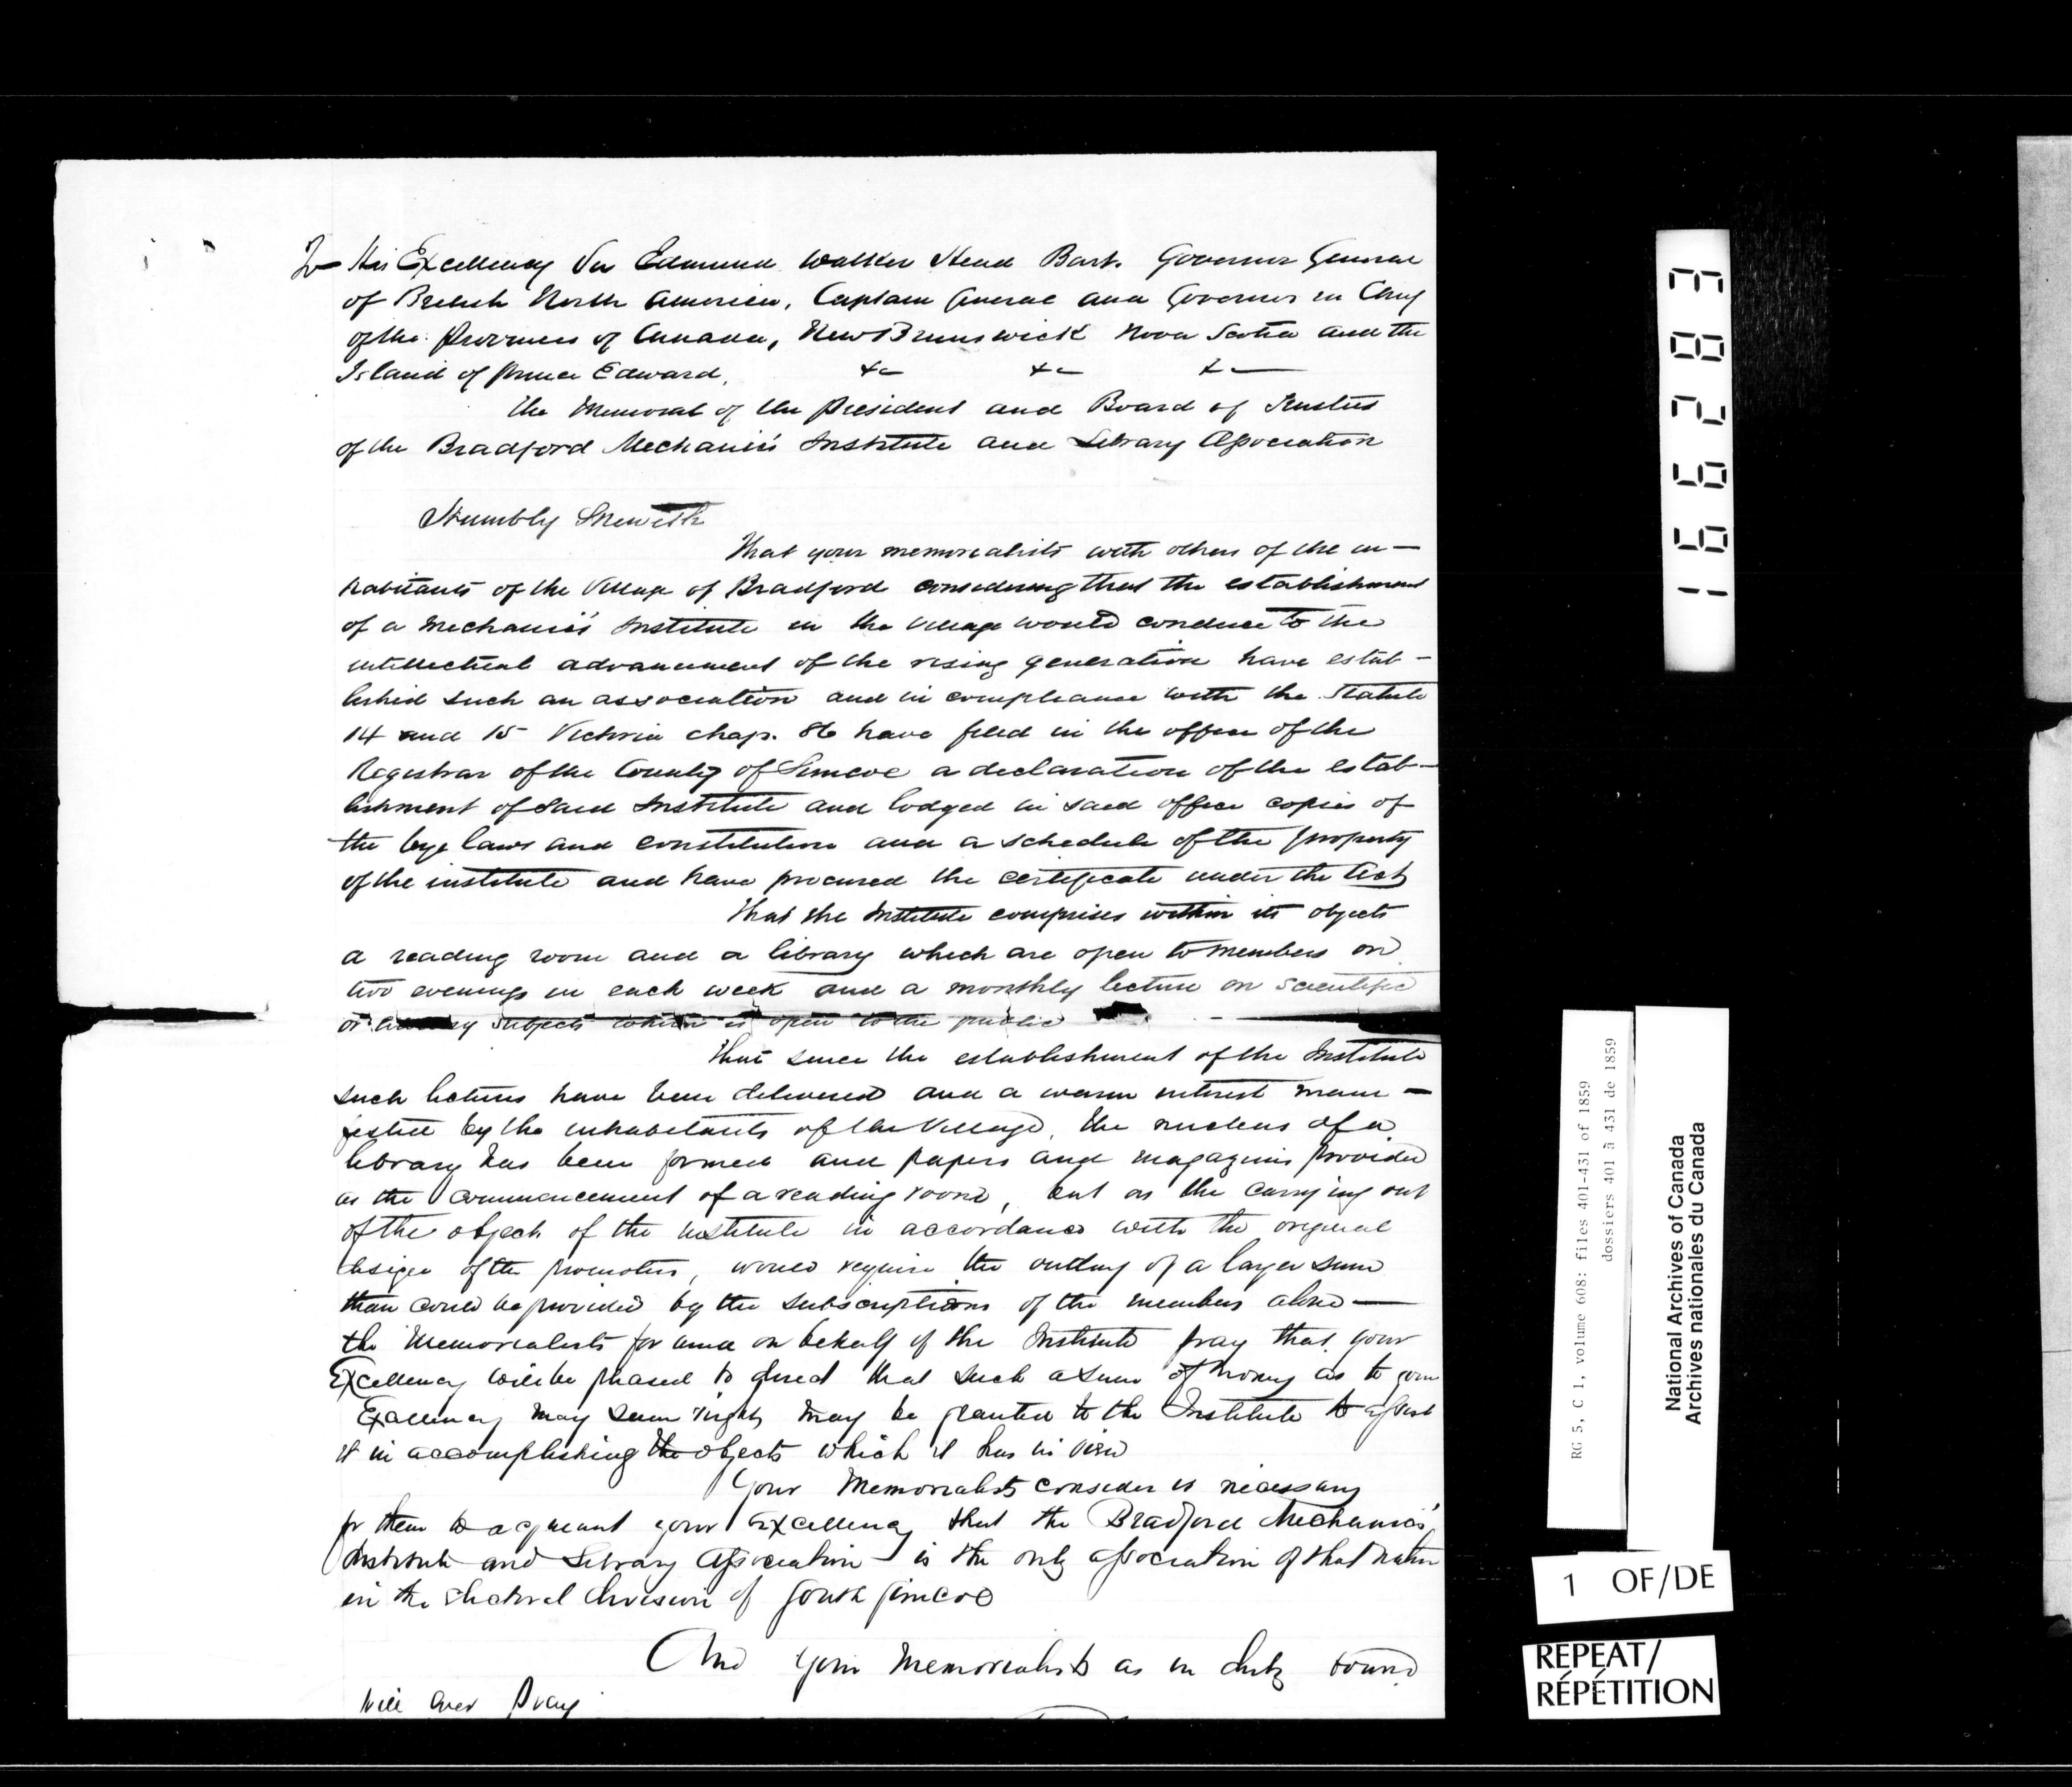 To His Excellency Sir Edmund Walker Head Bart. Governor General
of British North America, Captain General and Governor in Chief
of the Provinces of Canada, New Brunswick Nova Scotia and the
Island of Prince Edward, &c &c &c
The Memorial of the President and Board of Trustees
of the Bradford Mechanics' Institute and Library Association
Humbly Sheweth
That your memorialists with others of the in-
habitants of the Village of Bradford considering that the establishment
of a Mechanics' Institute in the Village would conduce to the
intellectual advancement of the rising generation have estab-
lished such an association and in compliance with the Statute
14 and 15 Victoria chap. 86 have filed in the office of the
Registrar of the County of Simcoe a declaration of the estab-
lishment of said Institute and lodged in said office copies of
the bye laws and constitution and a schedule of the property
of the institute and have procured the certificate under the Act
That the Institute comprises within its objects
a reading room and a library which are open to members on
two evenings in each week and a monthly lecture on scientific
or literary subjects which is open to the public
That since the establishment of the Institute
such lectures have been delivered and a warm interest mani-
fested by the inhabitants of the Village, the nucleus of a
library has been formed and papers and magazines provided
as the commencement of a reading room, but as the carrying out
of the objects of the institute in accordance with the original
design of the promoters, would require the outlay of a larger sum
than could be provided by the subscriptions of the members alone —
the Memorialists for and on behalf of the Institute pray that your
Excellency will be pleased to direct that such a sum of money as to your
Excellency may seem right may be granted to the Institute to assist
it in accomplishing the objects which it has in view
Your Memorialists consider it necessary
for them to acquaint your Excellency that the Bradford Mechanics'
Institute and Library Association is the only association of that nature
in the electoral division of South Simcoe
And your Memorialists as in duty bound
will ever Pray
166283
RG 5, C 1, volume 608: files 401-431 of 1859
dossiers 401 à 431 de 1859
National Archives of Canada
Archives nationales du Canada
1 OF/DE
REPEAT/
RÉPÉTITION